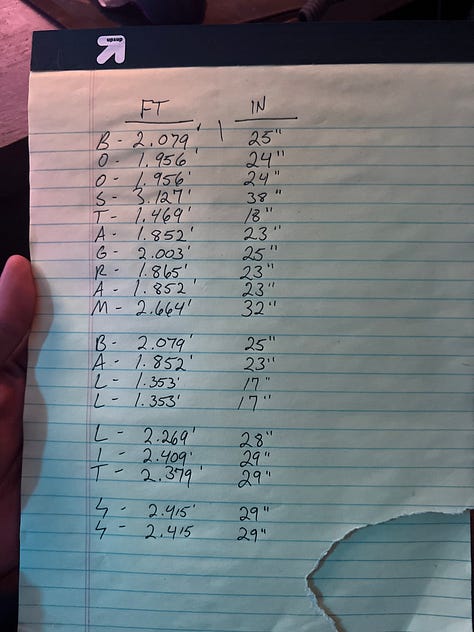 FT IN
B - 2.079' | 25"
O - 1.956' 24"
O - 1.956' 24"
S - 3.127' 38"
T - 1.469' 18"
A - 1.852' 23"
G - 2.003' 25"
R - 1.865' 23"
A - 1.852' 23"
M - 2.664' 32"
B - 2.079' 25"
A - 1.852' 23"
L - 1.353' 17"
L - 1.353' 17"
L - 2.269' 28"
I - 2.409' 29"
T - 2.379' 29"
4 - 2.415' 29"
4 - 2.415 29"